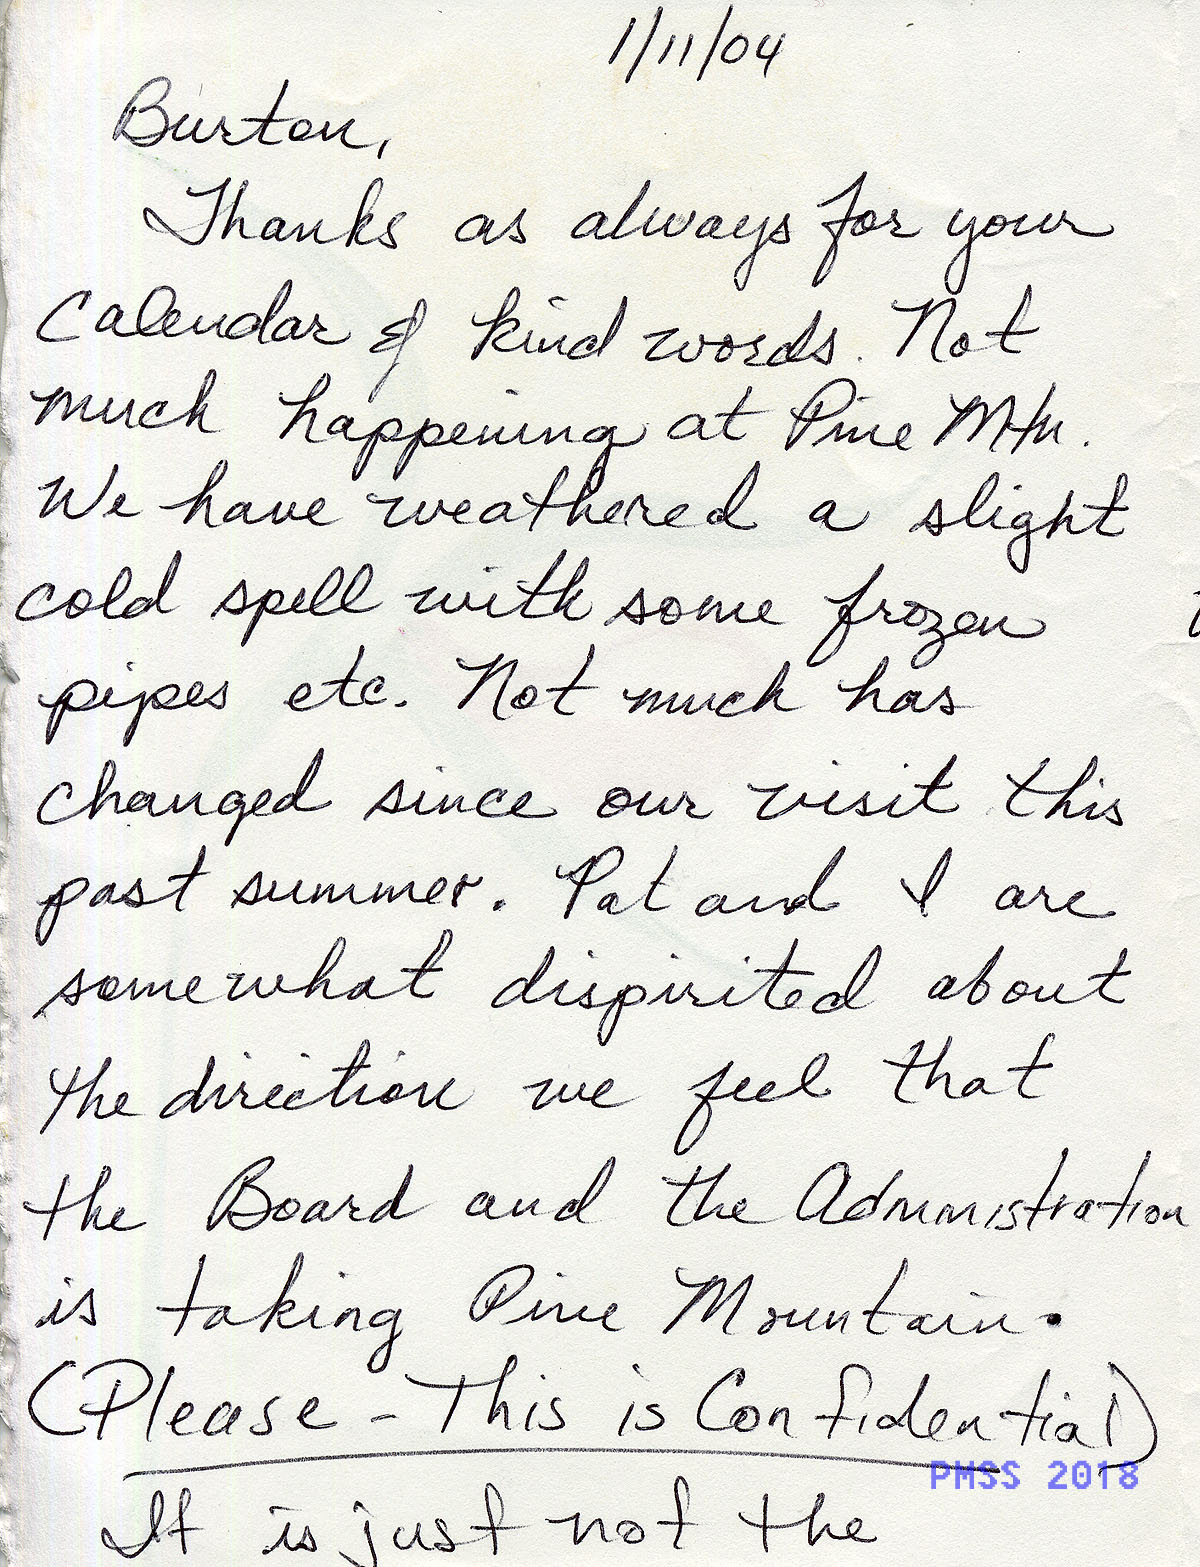 1/11/04
Burton,
Thanks as always for your
Calendar & kind words. Not
much happening at Pine Mtn.
We have weathered a slight
cold spell with some frozen
pipes etc. Not much has
changed since our visit this
past summer. Pat and I are
somewhat dispirited about
the direction we feel that
the Board and the Administration
is taking Pine Mountain.
(Please - This is Confidential)
PMSS 2018
It is just not the